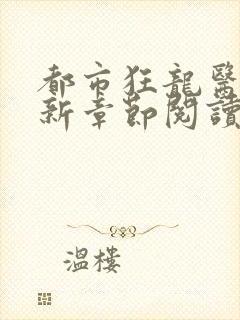 都市狂龍醫
新章節閱讀
溫樓